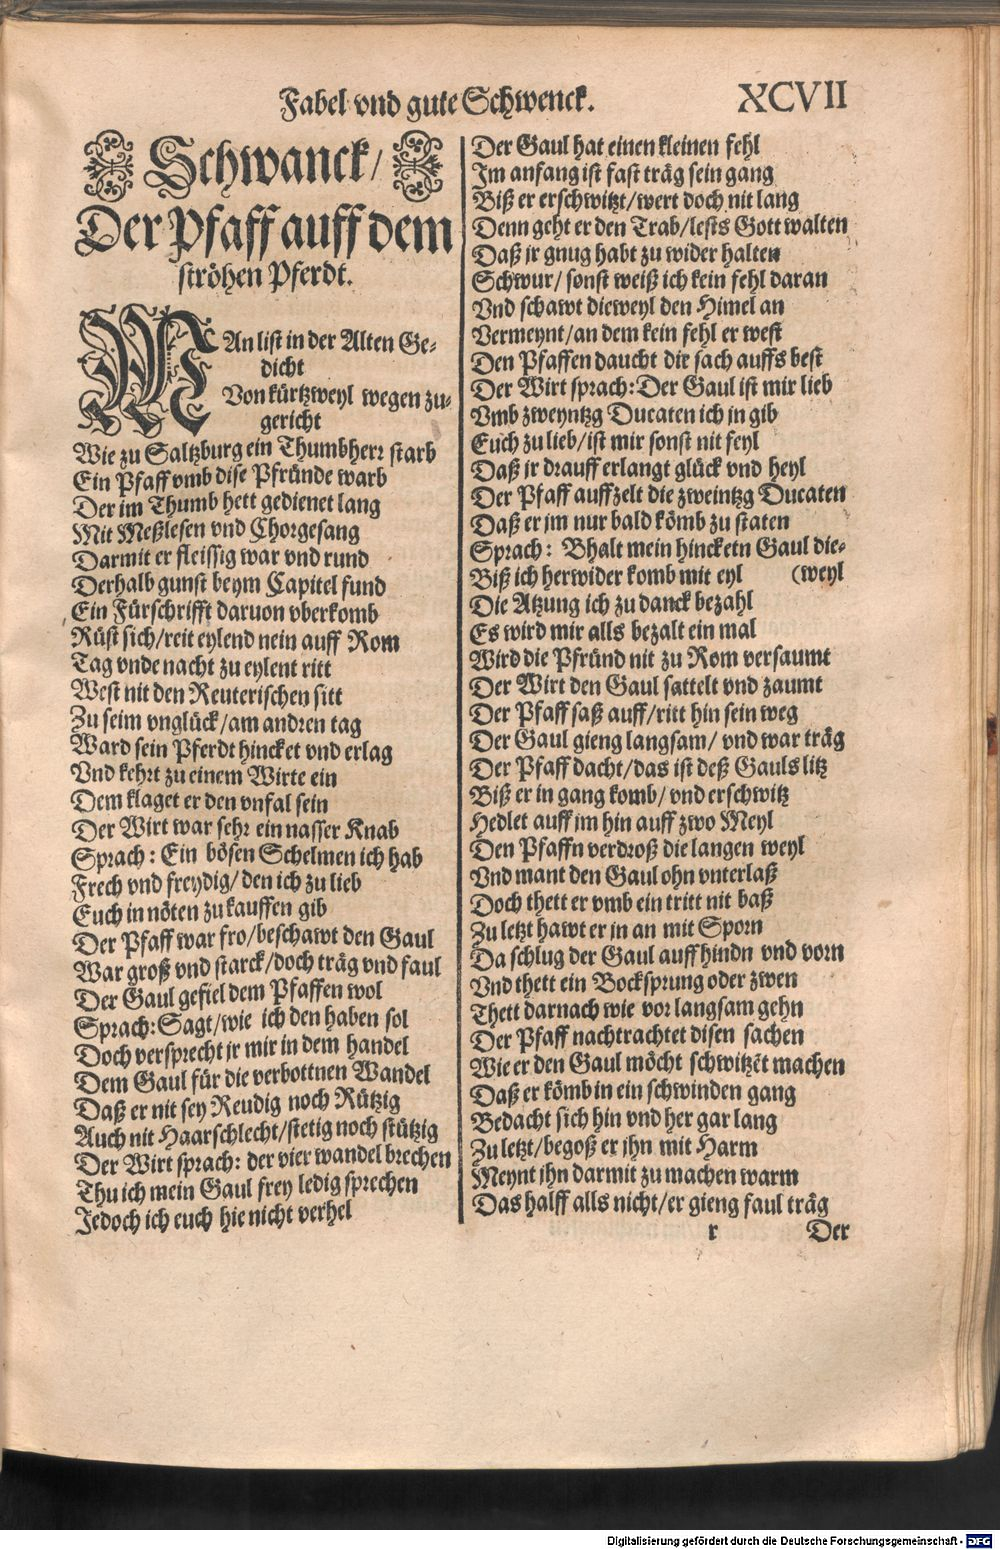 Fabel vnd gute Schwenck.
XCVII
Schwanck/
Der Pfaff auff dem
ströhen Pferdt.
MAn list in der Alten Ge-
dicht
Von kürtzweyl wegen zu-
gericht
Wie zu Saltzburg ein Thumbherr starb
Ein Pfaff vmb dise Pfründe warb
Der im Thumb hett gedienet lang
Mit Meßlesen vnd Chorgesang
Darmit er fleissig war vnd rund
Derhalb gunst beym Capitel fund
Ein Fürschrifft daruon vberkomb
Rüst sich/reit eylend nein auff Rom
Tag vnde nacht zu eylent ritt
West nit den Reuterischen sitt
Zu seim vnglück/am andren tag
Ward sein Pferdt hincket vnd erlag
Vnd kehrt zu einem Wirte ein
Dem klaget er den vnfal sein
Der Wirt war sehr ein nasser Knab
Sprach: Ein bösen Schelmen ich hab
Frech vnd freydig/den ich zu lieb
Euch in nöten zu kauffen gib
Der Pfaff war fro/beschawt den Gaul
War groß vnd starck/doch träg vnd faul
Der Gaul gefiel dem Pfaffen wol
Sprach: Sagt/wie ich den haben sol
Doch versprecht jr mir in dem handel
Dem Gaul für die verbottnen Wandel
Daß er nit sey Reudig noch Rützig
Auch nit Haarschlecht/stetig noch stützig
Der Wirt sprach: der vier wandel brechen
Thu ich mein Gaul frey ledig sprechen
Jedoch ich euch hie nicht verhel
Der Gaul hat einen kleinen fehl
Im anfang ist fast träg sein gang
Biß er erschwitzt/wert doch nit lang
Denn geht er den Trab/lests Gott walten
Daß jr gnug habt zu wider halten
Schwur/sonst weiß ich kein fehl daran
Vnd schawt dieweyl den Himel an
Vermeynt/an dem kein fehl er west
Den Pfaffen daucht die sach auffs best
Der Wirt sprach: Der Gaul ist mir lieb
Vmb zweyntzg Ducaten ich jn gib
Euch zu lieb/ist mir sonst nit feyl
Daß jr drauff erlangt glück vnd heyl
Der Pfaff auffzelt die zweintzg Ducaten
Daß er jm nur bald kömb zu staten
Sprach: Bhalt mein hincketn Gaul die-
Biß ich herwider komb mit eyl (weyl
Die Atzung ich zu danck bezahl
Es wird mir alls bezalt ein mal
Wird die Pfründ nit zu Rom versaumt
Der Wirt den Gaul sattelt vnd zaumt
Der Pfaff saß auff/ritt hin sein weg
Der Gaul gieng langsam/vnd war träg
Der Pfaff dacht/das ist deß Gauls litz
Biß er in gang komb/vnd erschwitz
Hedlet auff jm hin auff zwo Meyl
Den Pfaffn verdroß die langen weyl
Vnd mant den Gaul ohn vnterlaß
Doch thett er vmb ein tritt nit baß
Zu letzt hawt er jn an mit Sporn
Da schlug der Gaul auff hindn vnd vorn
Vnd thett ein Bocksprung oder zwen
Thett darnach wie vor langsam gehn
Der Pfaff nachtrachtet disen sachen
Wie er den Gaul möcht schwitzēt machen
Daß er kömb in ein schwinden gang
Bedacht sich hin vnd her gar lang
Zu letzt/begoß er jhn mit Harm
Meynt jhn darmit zu machen warm
Das halff alls nicht/er gieng faul träg
r
Der
Digitalisierung gefördert durch die Deutsche Forschungsgemeinschaft - DFG